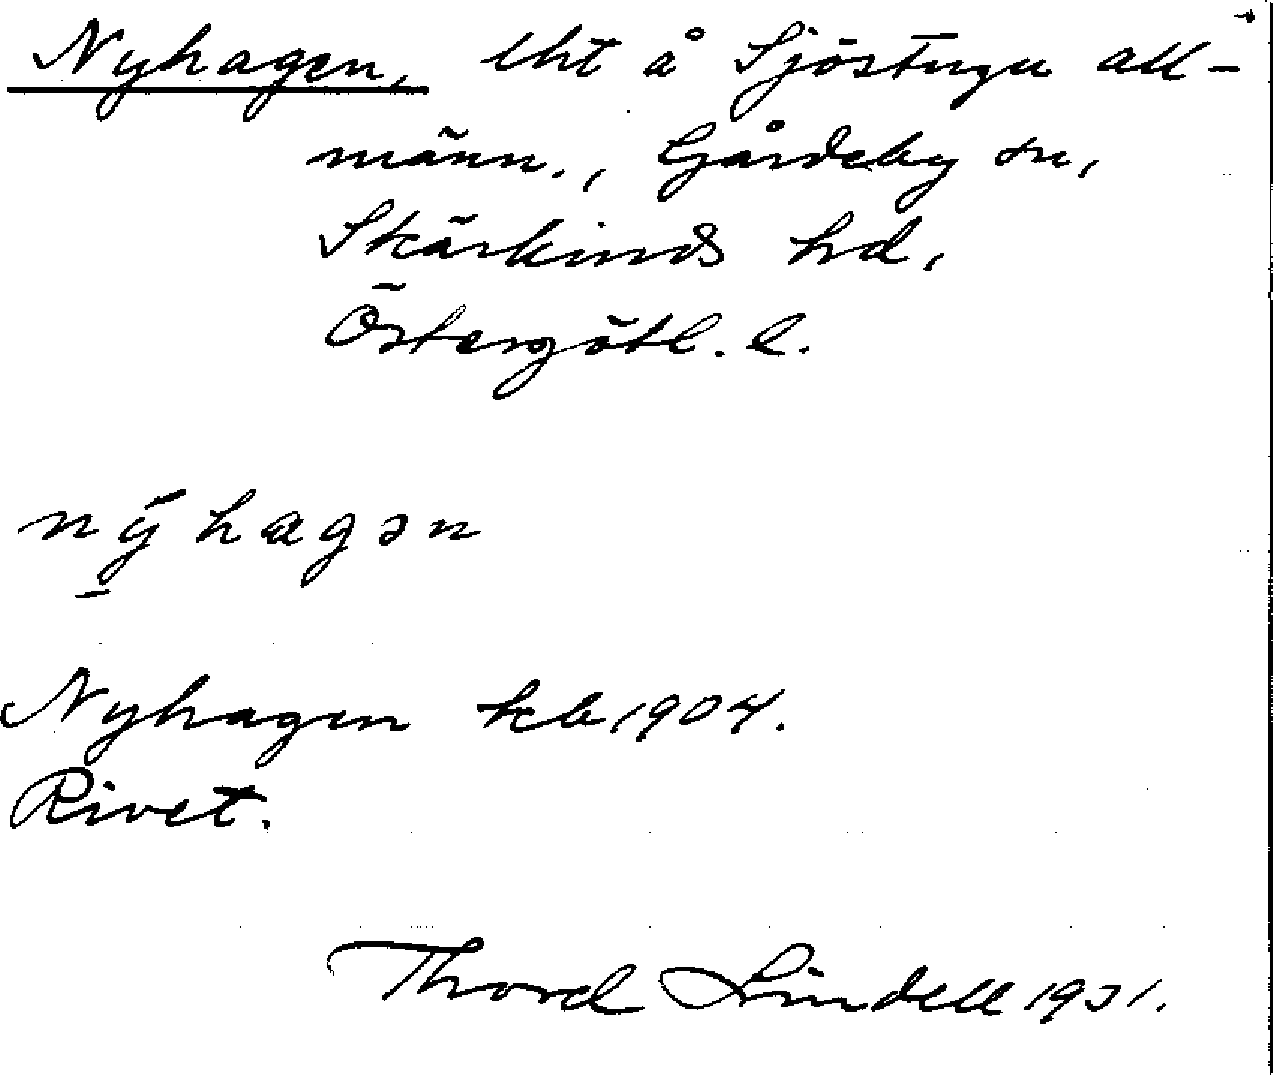 Nyhagen, lht å Sjöstugu all-
männ., Gårdeby sn,
Skärkinds hd,
Östergötl. l.
nýhagən
Nyhagen kb 1904.
Rivet.
Thord Lindell 1931.